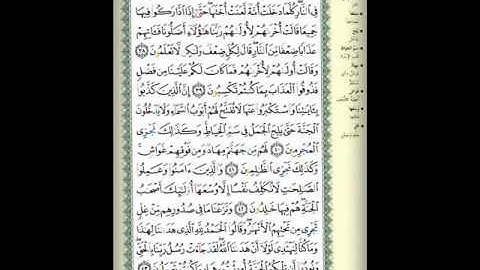 فِي ٱلنَّارِ كُلَّمَا دَخَلَتْ أُمَّةٌ لَّعَنَتْ أُخْتَهَا حَتَّىٰٓ إِذَا ٱدَّارَكُوا۟ فِيهَا
جَمِيعًا قَالَتْ أُخْرَىٰهُمْ لِأُولَىٰهُمْ رَبَّنَا هَٰٓؤُلَآءِ أَضَلُّونَا فَـَٔاتِهِمْ
عَذَابًا ضِعْفًا مِّنَ ٱلنَّارِ قَالَ لِكُلٍّ ضِعْفٌ وَلَٰكِن لَّا تَعْلَمُونَ ٣٨
وَقَالَتْ أُولَىٰهُمْ لِأُخْرَىٰهُمْ فَمَا كَانَ لَكُمْ عَلَيْنَا مِن فَضْلٍ
فَذُوقُوا۟ ٱلْعَذَابَ بِمَا كُنتُمْ تَكْسِبُونَ ٣٩ إِنَّ ٱلَّذِينَ كَذَّبُوا۟
بِـَٔايَٰتِنَا وَٱسْتَكْبَرُوا۟ عَنْهَا لَا تُفَتَّحُ لَهُمْ أَبْوَٰبُ ٱلسَّمَآءِ وَلَا يَدْخُلُونَ
ٱلْجَنَّةَ حَتَّىٰ يَلِجَ ٱلْجَمَلُ فِي سَمِّ ٱلْخِيَاطِ وَكَذَٰلِكَ نَجْزِي
ٱلْمُجْرِمِينَ ٤٠ لَهُم مِّن جَهَنَّمَ مِهَادٌ وَمِن فَوْقِهِمْ غَوَاشٍ
وَكَذَٰلِكَ نَجْزِي ٱلظَّٰلِمِينَ ٤١ وَٱلَّذِينَ ءَامَنُوا۟ وَعَمِلُوا۟
ٱلصَّٰلِحَٰتِ لَا نُكَلِّفُ نَفْسًا إِلَّا وُسْعَهَآ أُو۟لَٰٓئِكَ أَصْحَٰبُ
ٱلْجَنَّةِ هُمْ فِيهَا خَٰلِدُونَ ٤٢ وَنَزَعْنَا مَا فِي صُدُورِهِم مِّنْ غِلٍّ
تَجْرِي مِن تَحْتِهِمُ ٱلْأَنْهَٰرُ وَقَالُوا۟ ٱلْحَمْدُ لِلَّهِ ٱلَّذِي هَدَىٰنَا لِهَٰذَا
وَمَا كُنَّا لِنَهْتَدِيَ لَوْلَآ أَنْ هَدَىٰنَا ٱللَّهُ لَقَدْ جَآءَتْ رُسُلُ رَبِّنَا بِٱلْحَقِّ
وَنُودُوٓا۟ أَن تِلْكُمُ ٱلْجَنَّةُ أُورِثْتُمُوهَا بِمَا كُنتُمْ تَعْمَلُونَ ٤٣